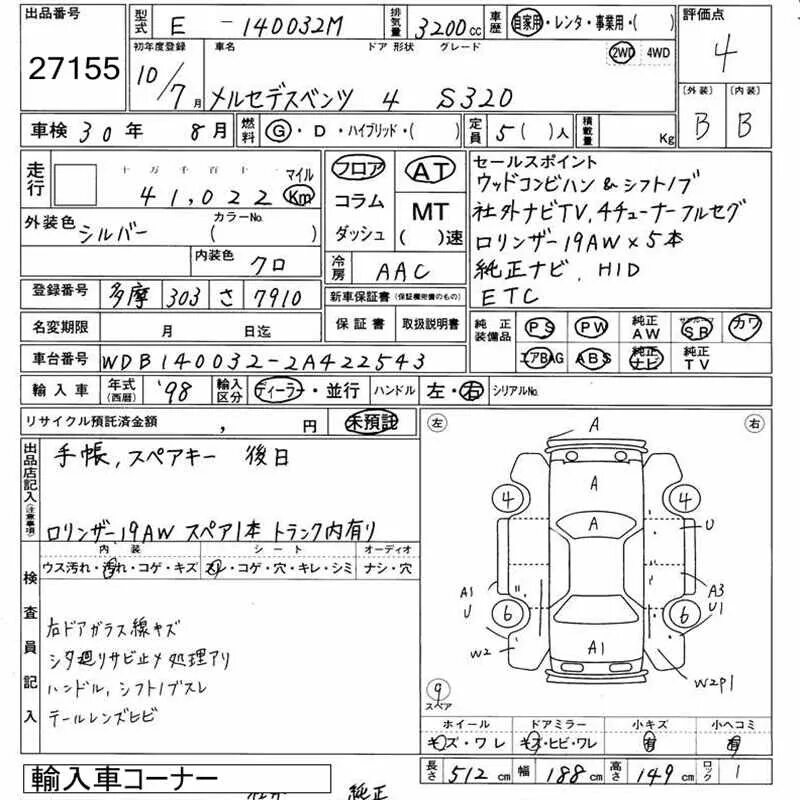 出品番号 型式 E - 140032M 排気量 3200cc 車歴 自家用・レンタ・事業用・( ) 評価点
27155 初年度登録 車名 ドア 形状 グレード 2WD 4WD 4
10/7月 メルセデスベンツ 4 S320 (外装) (内装)
車検 30年 8月 燃料 G・D・ハイブリッド・( ) 定員 5( )人 積載量 Kg B B
走行 十万千百十 マイル フロア AT セールスポイント
41,022 Km コラム MT ウッドコンビハン & シフトノブ
外装色 シルバー カラーNo. ( ) ダッシュ ( )速 社外ナビTV,4チューナーフルセグ
内装色 クロ 冷房 AAC ロリンザー19AW×5本
登録番号 多摩 303 さ 7910 新車保証書 (保証機関書のもの) 純正ナビ, HID
ETC
名変期限 月 日迄 保証書 取扱説明書 純正装備品 PS PW 純正AW サンルーフ SB カワ
車台番号 WDB140032-2A422543 エアBAG ABS 純正ナビ 純正TV
輸入車 年式(西暦) '98 輸入区分 ディーラー・並行 ハンドル 左・右 シリアルNo.
リサイクル預託済金額 , 円 未預託 左 右
出品店記入(注意事項) 手帳,スペアキー 後日
ロリンザー19AW スペア1本 トランク内有り
内装 シート オーディオ
ウス汚れ・汚れ・コゲ・キズ スレ・コゲ・穴・キレ・シミ ナシ・穴
検査員記入
右ドアガラス線キズ
シタ廻リサビ止メ処理アリ
ハンドル,シフトノブスレ
テールレンズヒビ
A
A
4 4
A U
A1 A3
U U1
6 6
W2 A1 W2P1
9 スペア
ホイール ドアミラー 小キズ 小ヘコミ
キズ・ワレ キズ・ヒビ・ワレ 有 有
輸入車コーナー 長さ 512cm 幅 188cm 高さ 149cm ロック 1
純正